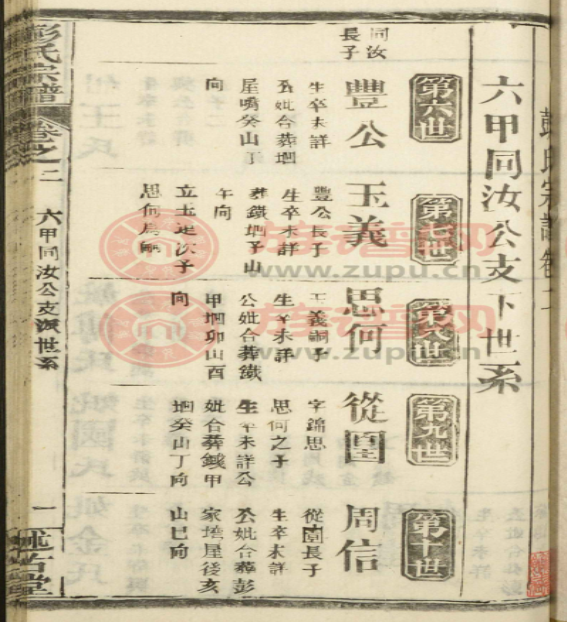 彭氏宗譜卷二
六甲同汝公支下世系
第六世
第七世
第八世
第九世
第十世
同汝
長子
豐公
生卒未詳
公妣合葬堋
屋嘴癸山丁
向
玉義
豐公長子
生卒未詳
葬鐵堋子山
午向
立士廷次子
思何為嗣
思何
玉義嗣子
生卒未詳
公妣合葬鐵
甲堋卯山酉
向
從圍
字錦思
思何之子
生卒未詳公
妣合葬鐵甲
堋癸山丁向
周信
從圍長子
生卒未詳
公妣合葬彭
家塆屋後亥
山巳向
彭氏宗譜
卷之二
六甲同汝公支派世系
一
述古堂
族譜網
www.zupu.cn
族譜網
www.zupu.cn